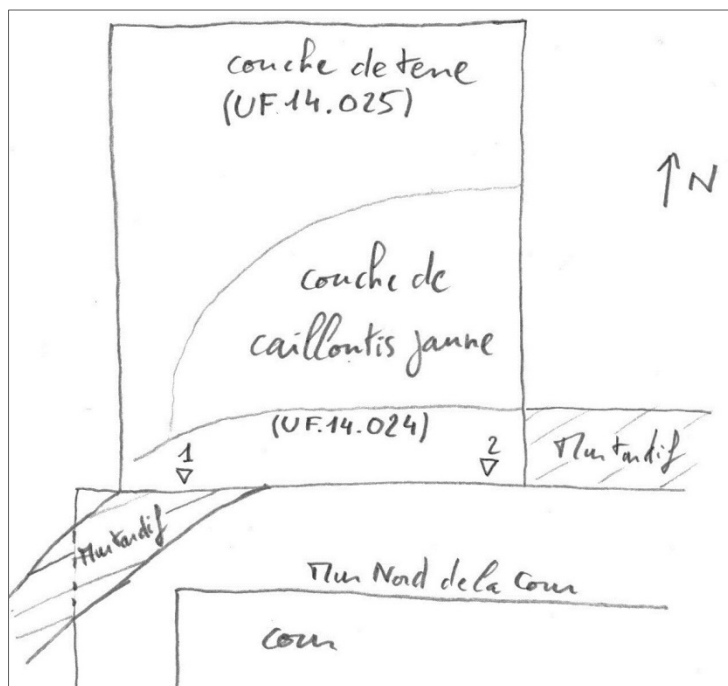 couche de terre
(UF.14.025)
↑ N
couche de
cailloutis jaune
(UF.14.024)
1
2
Mur tardif
Mur tardif
Mur Nord de la Cour
cour